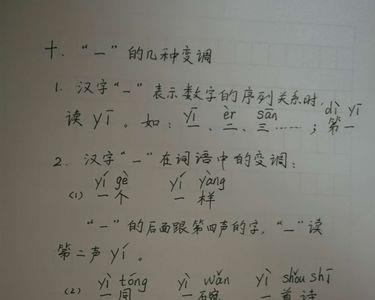 十. “一”的几种变调
1. 汉字“一”表示数字的序列关系时,
dì yī
读 yī 。如: yī èr sān
一、二、三……; 第一
2. 汉字“一”在词语中的变调:
yí gè yí yàng
(1) 一个 一样
“一”的后面跟第四声的字,“一”读
第二声 yí 。
yì tóng yì wǎn yì shǒu shī
(2) 一同 一碗 一首诗